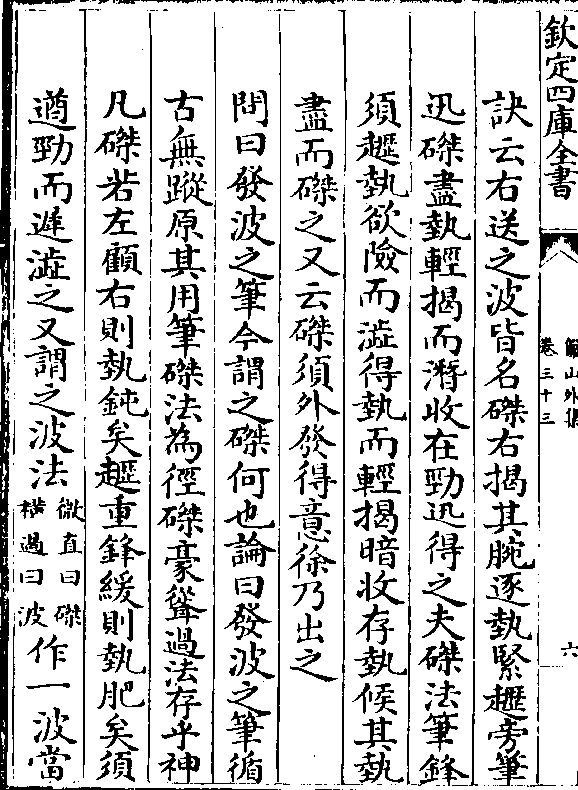 欽定四庫全書
卷三十三
六
訣云右送之波皆名磔右揭其腕逐埶緊趯旁筆
迅磔盡埶輕揭而潛收在勁迅得之夫磔法筆鋒
須趯埶欲險而澁得埶而輕揭暗收存埶候其埶
盡而磔之又云磔須外發得意徐乃出之
問曰發波之筆今謂之磔何也論曰發波之筆循
古無蹤原其用筆磔法為徑磔豪聳過法存乎神
凡磔若左顧右則埶鈍矣趯重鋒緩則埶肥矣須
遒勁而遲澁之又謂之波法微直曰磔橫過曰波作一波當